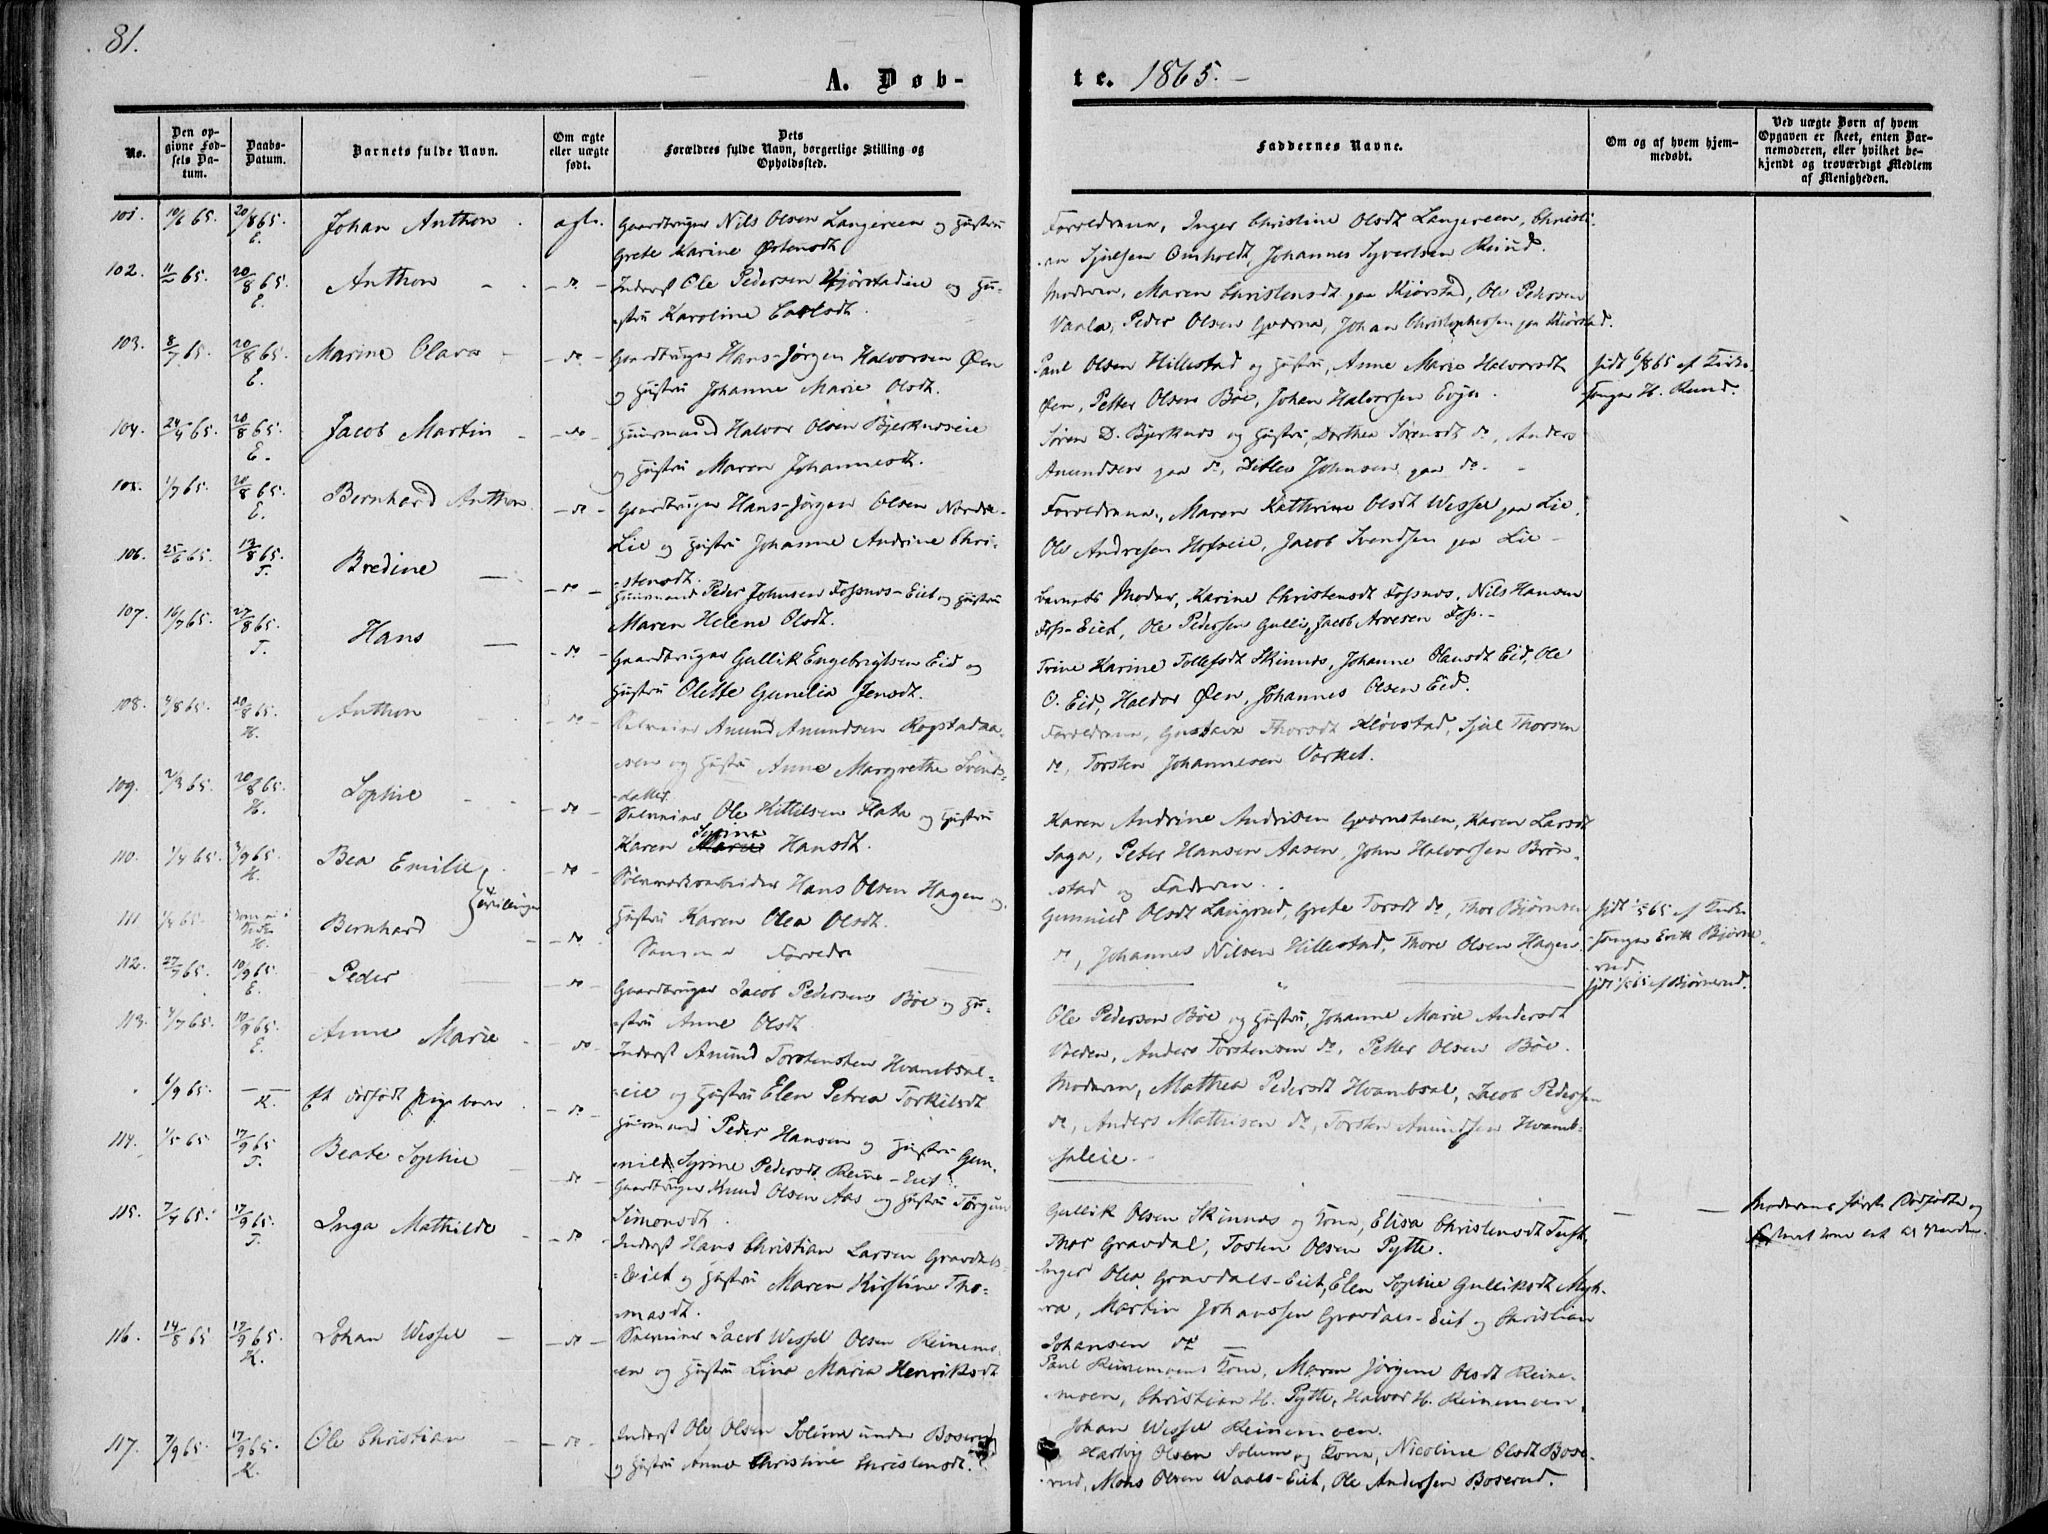 81.
A. Døb-
te. 1865. –
No.
Den op-
givne Fød-
sels Da-
tum.
Daabs-
Datum.
Barnets fulde Navn.
Om ægte
eller uægte
født.
Dets
Forældres fulde Navn, borgerlige Stilling og
Opholdssted.
Faddernes Navne.
Om og af hvem hjem-
medøbt.
Ved uægte Børn af hvem
Opgaven er skeet, enten Bar-
nemoderen, eller hvilket be-
kjendt og troværdigt Medlem
af Menigheden.
101. 10/6 65. 20/8 65. E. Johan Anthon. ægte. Gaardbruger Nils Olsen Langereen og Hustru
Grete Karine Østensdt.
Forældrene, Inger Christine Olsdt Langereen, Christi-
an Sjulsen Omholdt, Johannes Syvertsen Ruud.
102. 11/ 65. 20/8 65. E. Anthon – do – Inderst Ole Pedersen Kjørstadeie og Hu-
stru Karoline Carlsdt.
Moderen, Maren Christensdt paa Kjørstad, Ole Pedersen
Vaala, Peder Olsen Qværna, Johan Christophersen paa Kjørstad.
103. 8/7 65. 20/8 65. E. Marine Olava – do – Gaardbruger Hans-Jørgen Halvorsen Øen
og Hustru Johanne Marie Olsdt.
Paul Olsen Hillestad og Hustru, Anne Marie Halvorsdt
Øen, Petter Olsen Bøe, Johan Halvorsen Evju.
Hjdt 6/8 65 af Kirke-
sanger H. Ruud.
104. 24/4 65. 20/8 65. E. Jacob Martin – do – Huusmand Halvor Olsen Bjerknæseie
og Hustru Maren Johannesdt.
Søren D. Bjerknæs og Hustru, Dorthea Sørensdt do, Anders
Amundsen paa do, Ditlev Johnsen paa do. –
105. 1/7 65. 20/8 65. E. Bernhard Anthon. – do – Gaardbruger Hans-Jørgen Olsen Nordre-
Lie og Hustru Johanne Andrine Chri-
stensdt.
Forældrene, Maren Kathrine Olsdt Wessel paa Lie,
Ole Andresen Hofseie, Jacob Svendsen paa Lie –
106. 25/6 65. 13/8 65. T. Bredine – do – Huusmand Peder Johnsen Fossnæs-Eiet og Hustru
Maren Helene Olsdt.
Barnets Moder, Karine Christensdt Fossnæs, Nils Hansen
Foss-Eiet, Ole Pedersen Gulli, Jacob Arvesen Foss. –
107. 16/7 65. 27/8 65. T. Hans – do – Gaardbruger Gullik Engebrigtsen Eid og
Hustru Olette Gunelia Jensdt.
Trine Karine Tollefsdt Skinnæs, Johanne Olausdt Eid, Ole
O. Eid, Haldor Øen, Johannes Olsen Eid.
108. /8 65. 20/8 65. H. Anthon – do – Selveier Amund Amundsen Rogstadaa-
sen og Hustru Anne Margrethe Svends-
datter.
Forældrene, Gustava Thorsdt Kløvstad, Sjul Thorsen
do, Torsten JohannesenVærket.
109. 2/3 65. 20/8 65. H. Sophie – do – Selveier Ole Kittilsen Flata og Hustru
Karen Syrine Hansdt.
Karen Andrine Andrisen Qværnstuen, Karen Larsdt
Saga, Peter Hansen Aasen, John Halvorsen Brøn-
stad og Faderen.
110. 1/4 65. 3/9 65. H. Bea Emilie Tvillinger – do – Sølvværksarbeider Hans Olsen Hagen og
Hustru Karen Olea Olsdt.
Gunnild Olsdt Langrud, Grete Torsdt do, Thor Bjørnsen
do, Johannes Nilsen Hillestad, Thore Olsen Hagen.
Hjdt 1/5 65 af Kirke-
sanger Erik Bjørne-
rud.
111 1/4 65. H. Bernhard – do – Samme Forældre
" Hjdt 1/5 65 af Bjørnerud.
112. 27/7 65. 10/9 65. E. Peder – do – Gaardbruger Jacob Pedersen Bøe og Hu-
stru Anne Olsdt
Ole Pedersen Bøe og Hustru, Johanne Marie Andersdt
Volden, Anders Torstensen do, Petter Olsen Bøe.
113. 4/7 65. 10/9 65. E. Anne Marie – do – Inderst Amund Torstensten Hvambsal-
eie og Hustru Elen Petrea Torkilsdt
Moderen, Mathea Pedersdt Hvambsal, Jacob Pedersen
do, Anders Mathisen do, Torsten Amundsen Hvamb-
saleie. –
6/9 65. – K. Et dødfødt Pigebarn. – do – Huusmand Peder Hansen og Hustru Gun-
nild Syrine Pedersdt Reine-Eiet
Moderens første Dødfødte og
114. 1/5 65 17/9 65. T. Beate Sophie – do – Gaardbruger Knud Olsen Aas og Hustru Jørgine
Simonsdt.
Gullik Olsen Skinnæs og Kone, Elisa Christensdt Tuft,
Thor Gravdal, Tosten Olsen Pytte.
115. 7/4 65. 17/9 65. T. Inga Mathilde – do – Inderst Hans Christian Larsen Gravdals-
Eiet og Hustru Maren Kirstine Tho-
masdt.
Inger Olea Gravdals-Eiet, Elen Sophie Gulliksdt Myh-
ra, Martin Johansen Gravdals-Eiet og Christian
Johansen do –
116. 14/8 65 17/9 65. K. Johan Wessel – do – Selveier Jacob Wessel Olsen Reinemo-
en og Hustru Lina Maria Henriksdt
Paul Reinemoens Kone, Maren Jørgine Olsdt Reine-
moen, Christian H. Pytte, Halvor H. Reinemoen,
Johan Wessel Reinemoen.
117. 7/9 65. 17/9 65. K. Ole Christian – do – Inderst Ole Olsen Solum under Boserud
og Hustru Anne Christine Christensdt.
Hartvig Olsen Solum og Kone, Nicoline Olsdt Bose-
rud, Mons Olsen Waals-Eiet, Ole Andersen Boserud.